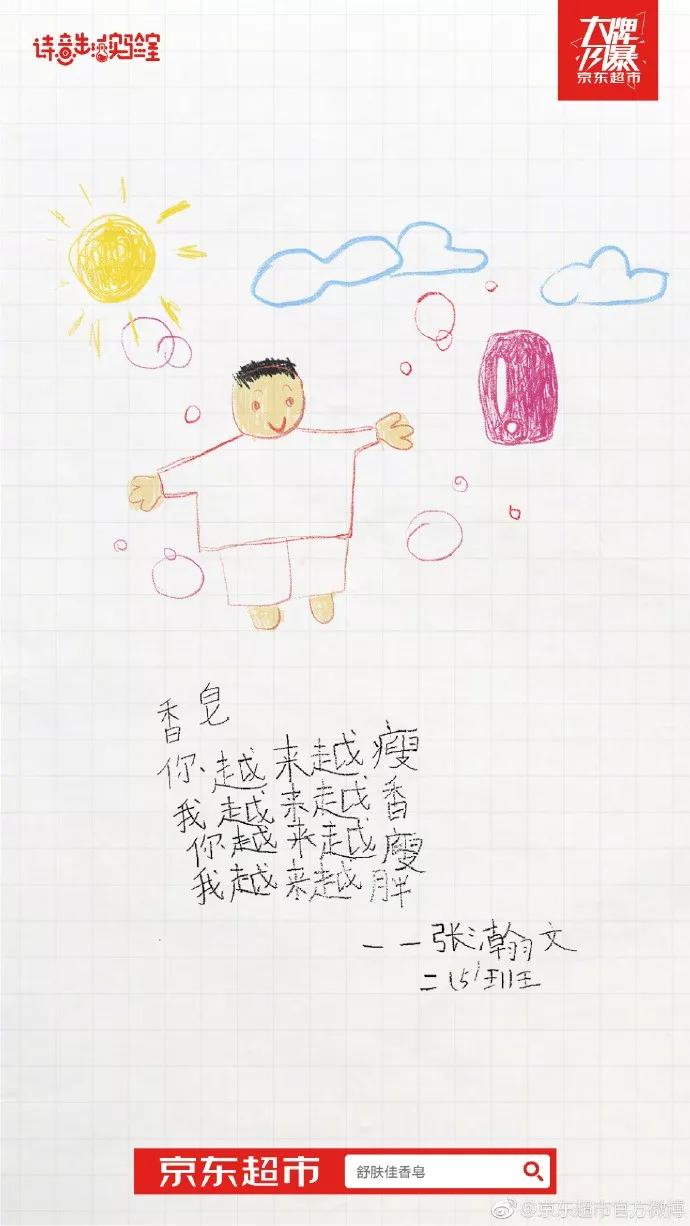 诗意生活实验室
大牌风暴
京东超市
香皂
你越来越瘦
我越来越香
你越来越瘦
我越来越胖
——张瀚文
二(5)班
京东超市
舒肤佳香皂
@京东超市官方微博